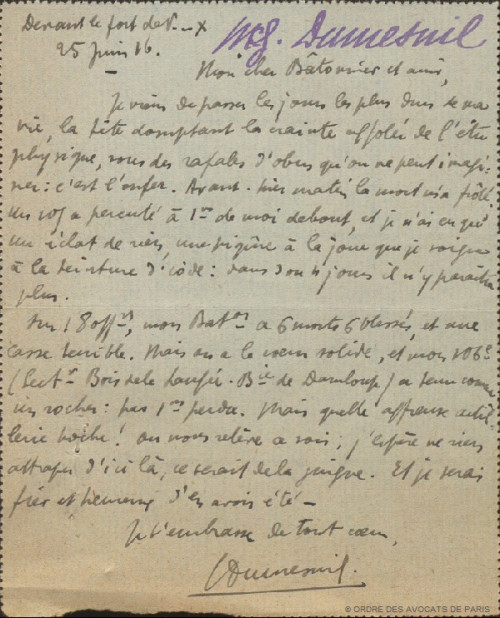 Devant le fort de V. - x
Mg. Dumesnil
25 juin 16.
Mon cher Bâtonnier et ami,
Je viens de passer les jours les plus durs de ma
vie, la tête domptant la crainte affolée de l'être
physique, sous des rafales d'obus qu'on ne peut imagi-
ner : c'est l'enfer. Avant-hier matin la mort m'a frôlé.
Un 105 a percuté à 1m de moi debout, et je n'ai eu qu'
un éclat de rien, une piqûre à la joue que je soigne
à la teinture d'iode : dans 3 ou 4 jours il n'y paraîtra
plus.
Sur 18 offrs, mon Baton a 6 morts 6 blessés, et une
casse terrible. Mais on a le cœur solide, et mon 106e
(Sectr Bois de la Laufée - Bie de Damloup) a tenu comme
un rocher : pas 1m perdu. Mais quelle affreuse artil-
lerie boche ! On nous relève ce soir ; j'espère ne rien
attraper d'ici là, ce serait de la guigne. Et je serai
fier et heureux d'en avoir été -
Je t'embrasse de tout cœur,
Dumesnil.
© ORDRE DES AVOCATS DE PARIS